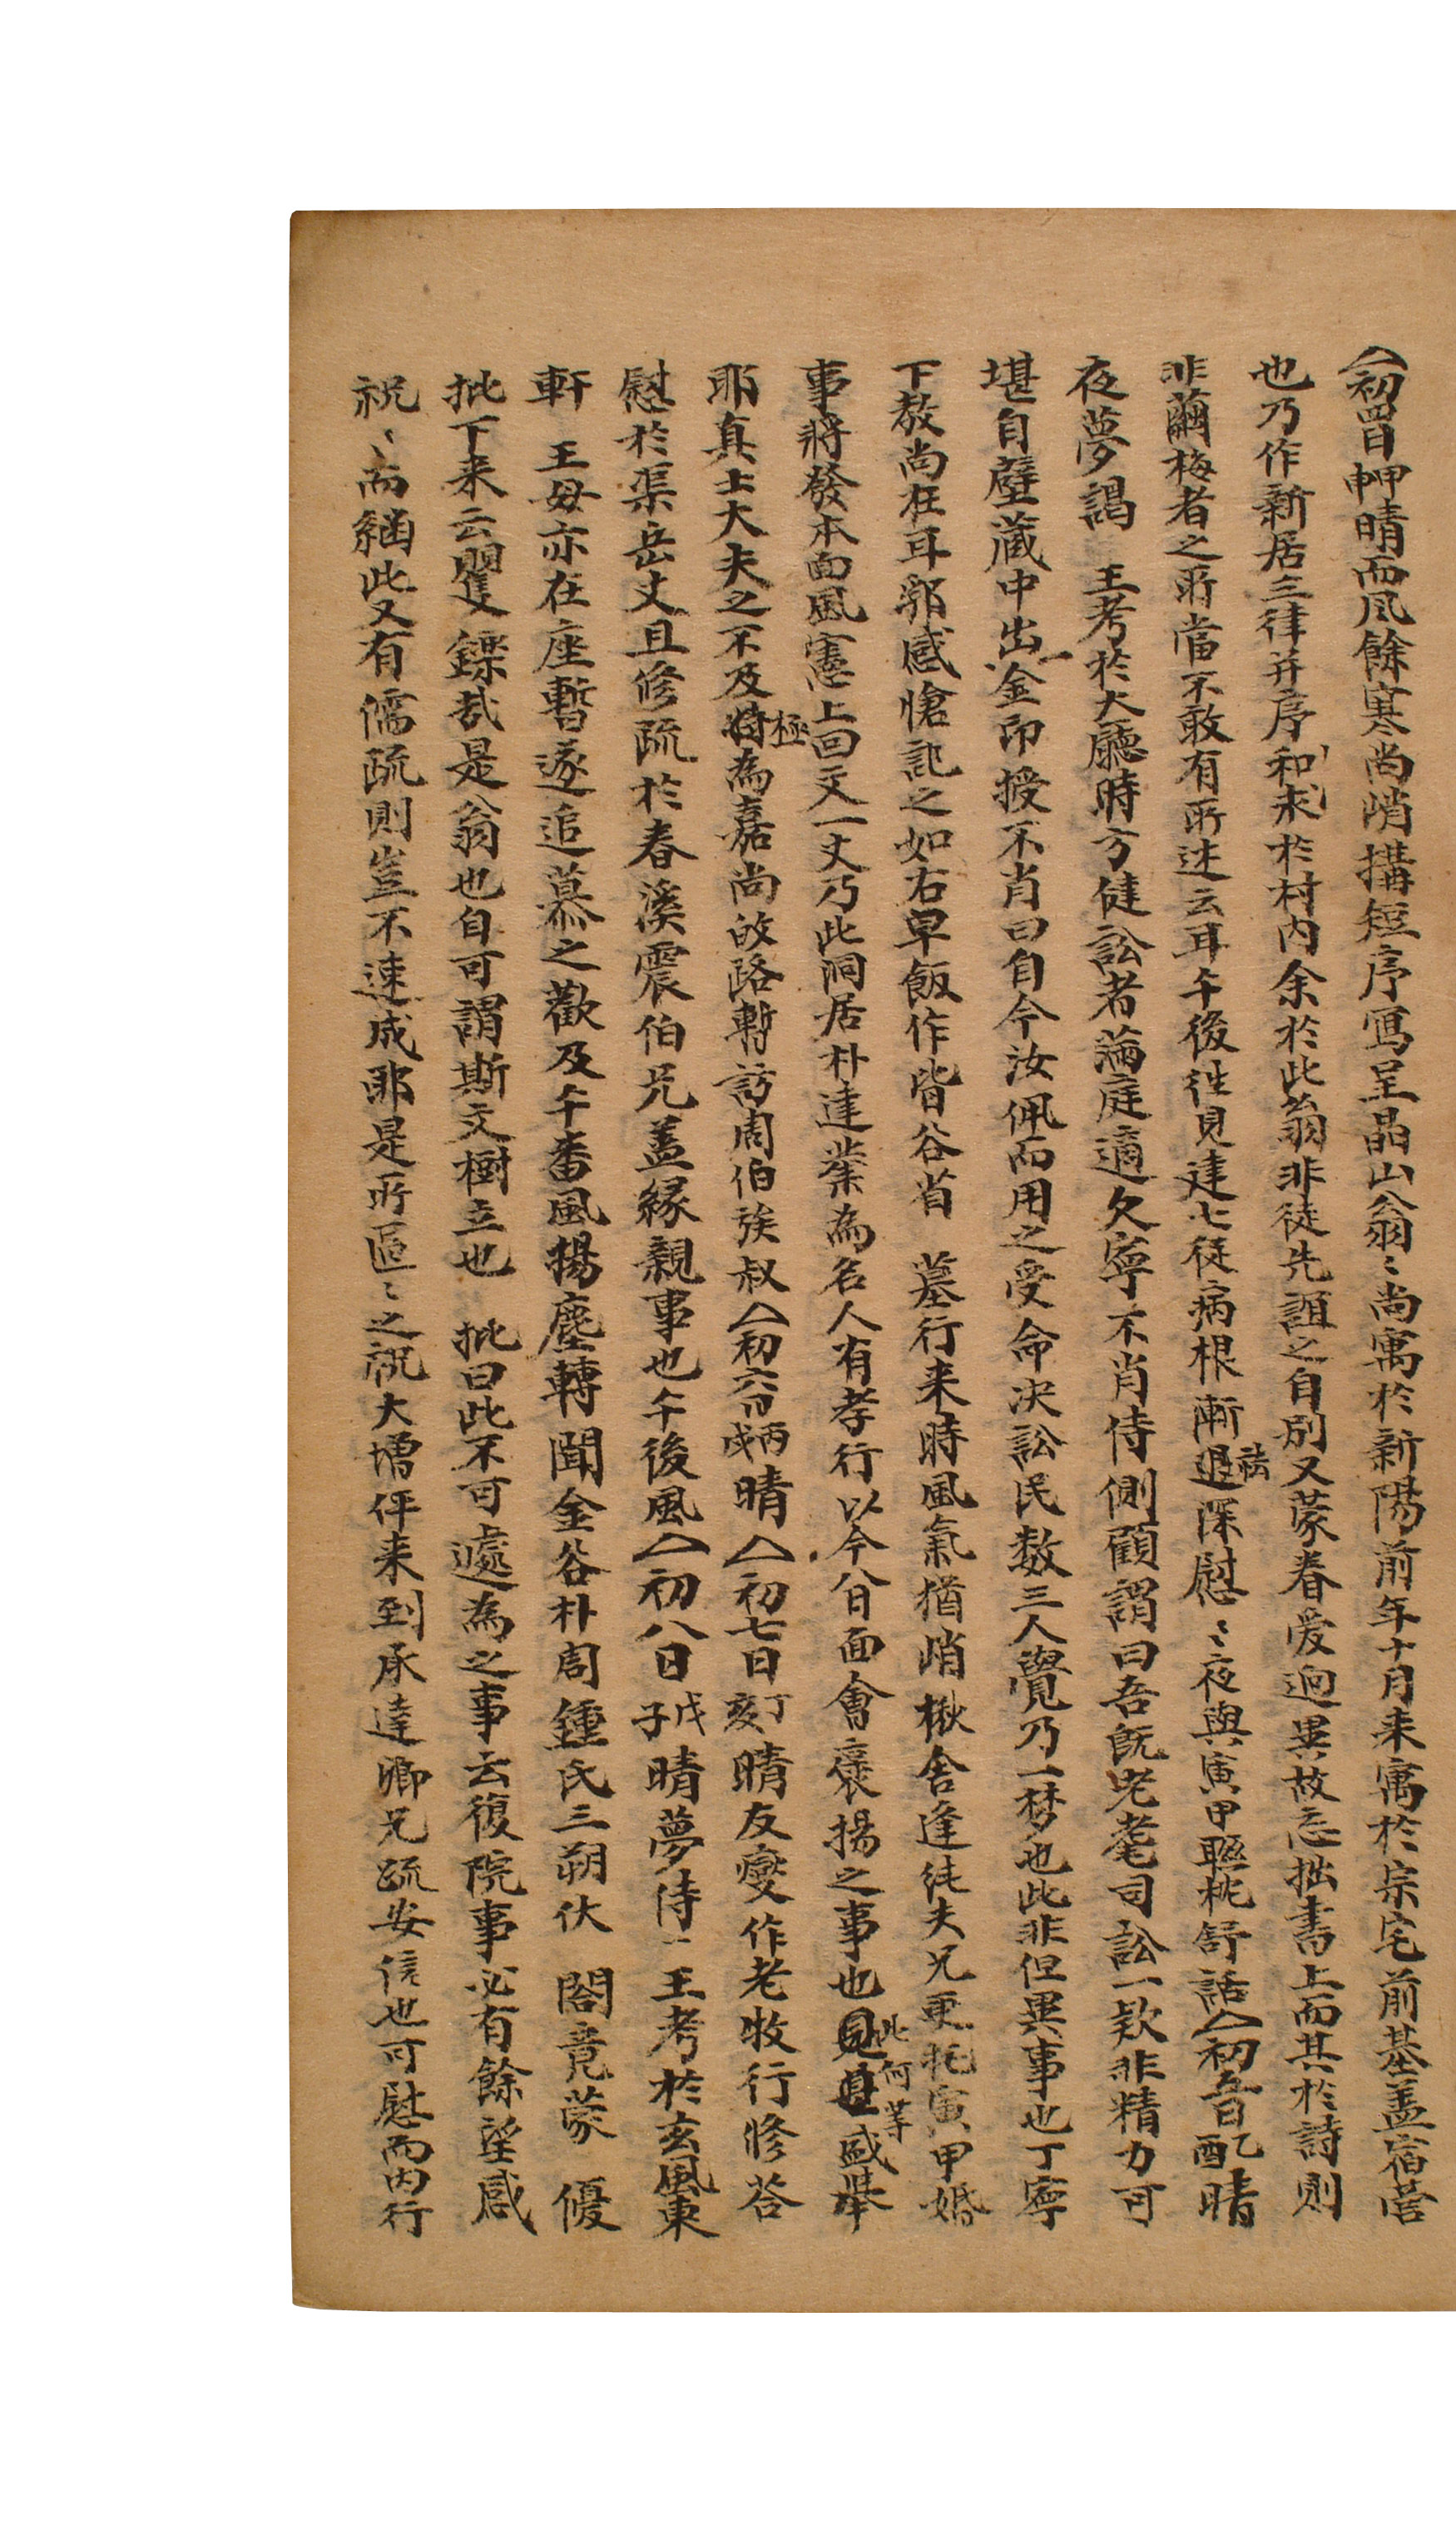 初四日甲申晴而風餘寒尚峭搆短序寫呈晶山翁〻尚寓於新陽前年十月来寓於宗宅前基盖宿營
也乃作新居三律并序求和於村内余於此翁非徒先誼之自別又蒙眷爱逈異故忘拙書上而其於詩則
非繭梅者之所當不敢有所述云耳午後往見建七從病根漸祛深慰〻夜與寅甲聯桃舒話初五日乙酉晴
夜夢謁 王考於大廳時方健訟者滿庭適欠寧不肖侍側顧謂曰吾旣老耄司訟一款非精力可
堪自壁藏中出一金印授不肖曰自今汝佩而用之受命决訟民数三人覺乃一梦也此非但異事也丁寧
下教尚在耳郭感愴記之如右早飯作皆谷省 墓行来時風氣猶峭楸舍逢純夫兄更托寅甲婚
事將發本面風憲上回文一丈乃此洞居朴達業為名人有孝行以今八日面會褒揚之事也此何等盛擧
耶真士大夫之不及極為嘉尚故路暫訪周伯族叔初六日丙戌晴初七日丁亥晴友燮作老牧行修答
慰於渠岳丈且修疏於春溪震伯兄盖緣親事也午後風初八日戊子晴夢侍 王考於玄風東
軒 王母亦在座暫遂追慕之歡及午番風揚塵轉聞金谷朴周鍾氏三朔伏 閤竟蒙 優
批下来云矍鑠哉是翁也自可謂斯文樹立也 批曰此不可遽為之事云復院事必有餘望感
祝〻而繼此又有儒疏則豈不速成耶是所區〻之祝大增伻来到承達卿兄疏安信也可慰而内行